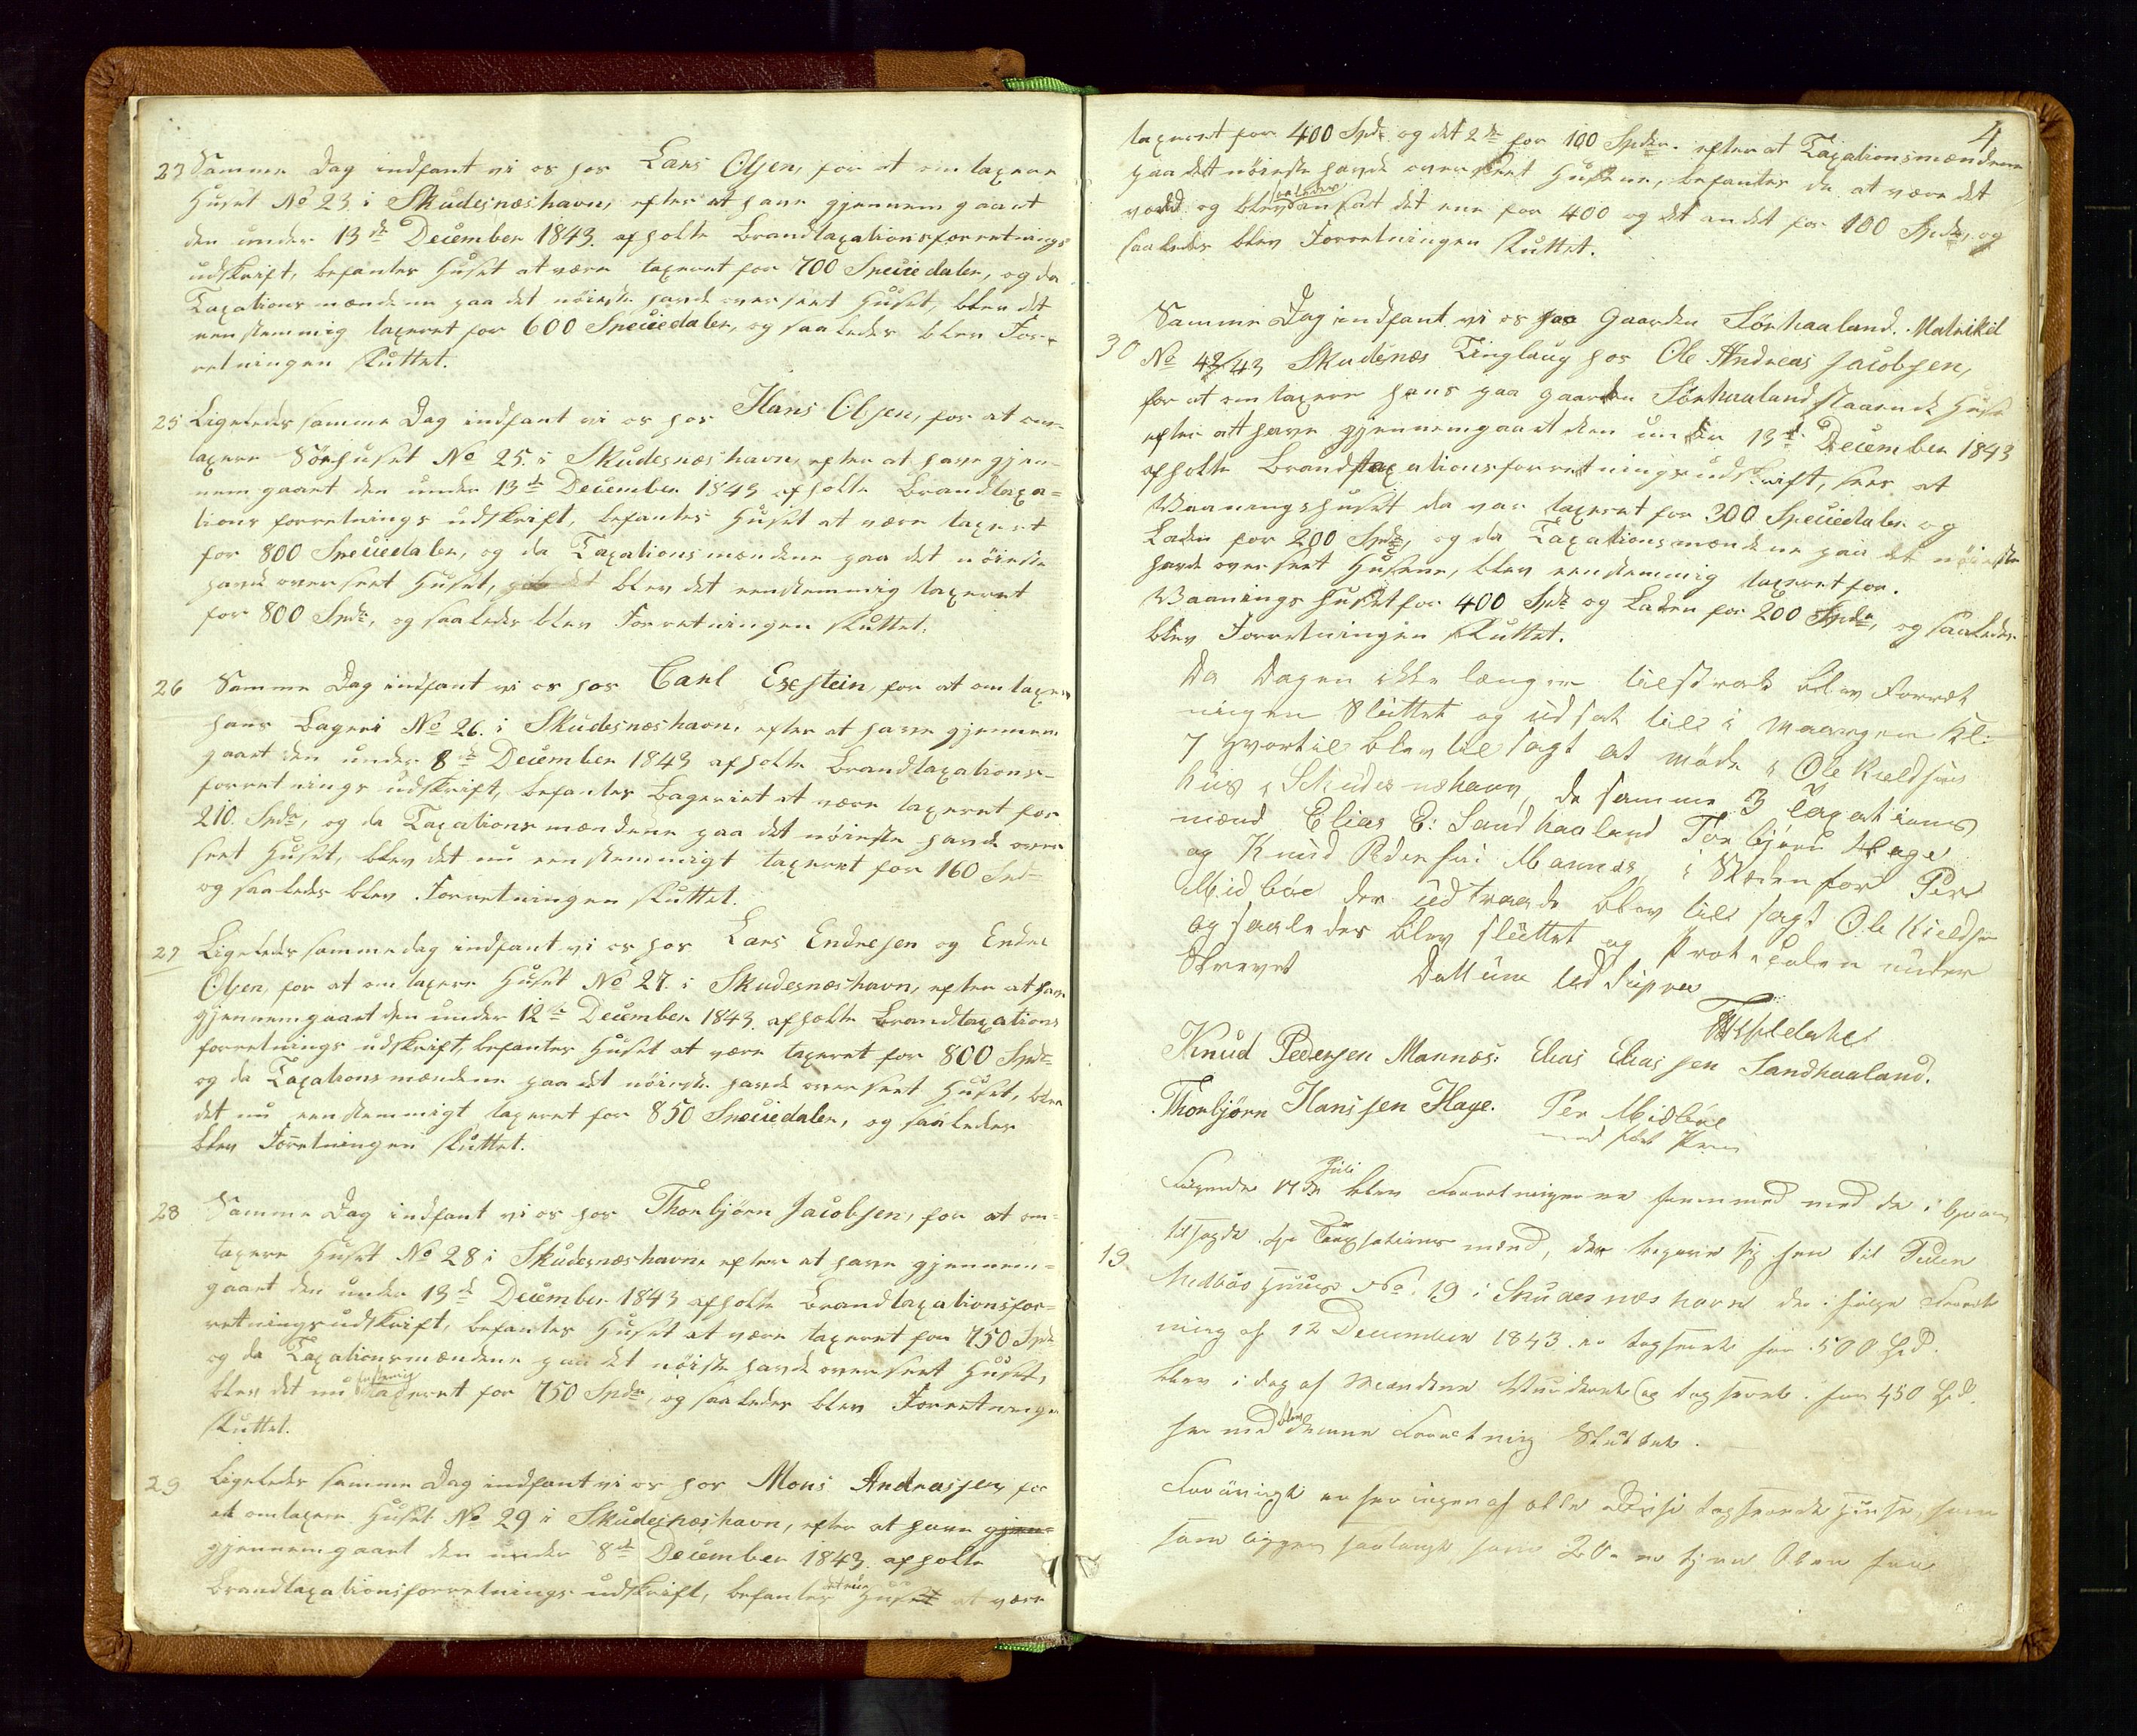 23 Samme Dag indfant vi os hos Lars Olsen, for at omtaxere
Huset No 23 i Skudesnæshavn, efter at have gjennemgaaet
den under 13de December 1843. afholte Brandtaxationsforretnings
udskrift, befantes Huset at være taxeret for 700 Speciedaler, og da
Taxationsmændene paa det nöieste havde overseet Huset, blev det
eenstemmig taxeret for 600 Speciedaler, og saaledes blev For-
retningen sluttet.
25 Ligeledes samme Dag indfant vi os hos Hans Olsen, for at om-
taxere Söehuset No 25. i Skudesnæshavn, efter at have gjen-
nemgaaet den under 13de December 1843 afholte Brandtaxa=
tions forretnings udskrift, befantes Huset at være taxeret
for 800 Speciedaler, og da Taxationsmændene paa det nöieste
havde overseet Huset, blev det eenstemmig taxeret
for 800 Spdr, og saaledes blev Forretningen sluttet.
26 Samme Dag indfant vi os hos Carl Eckstein, for at omtaxere
hans Bageri No 26. i Skudesnæshavn, efter at have gjennem
gaaet den under 8de December 1843 afholte Brandtaxations-
forretnings udskrift, befantes Bageriet at være taxeret for
210. Spdr, og da Taxationsmændene paa det nöieste havde over
seet Huset, blev det nu eenstemmigt taxeret for 160 Spdr
og saaledes blev Forretningen sluttet.
27 Ligeledes sammedag indfant vi os hos Lars Endresen og Endre
Olsen, for at omtaxere Huset No 27. i Skudesnæshavn, efter at have
gjennemgaaet den under 12te December 1843. afholte Brandtaxations
forretnings udskrift, befantes Huset at være taxeret for 800 Spdr
og da Taxationsmændene paa det nöieste havde overseet Huset, blev
det nu eenstemmigt taxeret for 850 Speciedaler, og saaledes
blev Forretningen sluttet.
28 Samme Dag indfant vi os hos Thorbjörn Jacobsen, for at om-
taxere Huset No 28 i Skudesnæshavn, efter at have gjennem=
gaaet den under 13de December 1843 afholte Brandtaxationsfor=
retningsudskrift, befantes Huset at være taxeret for 750 Spdr
og da Taxationsmændene paa det nöiste havde overseet Huset,
blev det nu taxeret for 750 Spdr, og saaledes blev Forretningen
sluttet.
29 Ligeledes samme Dag indfant vi os hos Mons Andreassen for
at omtaxere Huset No 29 i Skudesnæshavn, efter at have gjen-
gjennemgaaet den under 8de December 1843. afholte
Brandtaxationsforretnings udskrift, befantes det ene Huset at være
4
taxeret for 400 Spdr og det 2det for 100 Spdlr. efter at Taxationsmændene
paa det nöieste havde overseet Husene, befantes de at være det
værd og blev saaledes ansat det ene for 400 og det andet for 100 Spdr, og
saaledes blev Forretningen sluttet.
Samme Dag indfant vi os paa Gaarden Sörhaaland. Matrikel
30 No 42/43 Skudesnæs Tinglaug hos Ole Andreas Jacobsen,
for at omtaxere hans paa Gaarden Sörhaaland staaende Huse
efter att have gjennemgaaet den under 13de December 1843
afholte Brandtaxationsforretningsudskrift, sees at
Waaningshuset da var taxeret for 300 Speciedaler og
Laden for 200 Spdr, og da Taxationsmændene paa det nöieste
havde overseet Husene, blev eenstemmig taxeret for.
Waanings Huset for 400 Spdr og Laden for 200 Spdr, og saaledes
blev Forretningen sluttet.
Da Dagen ikke længer tilstrak blev Forret
ningen Sluttet og udsat till i Maargen Kl:
7 hvortil blev tilsagt at möde i Ole Kieldsens
Huus i Schudesnshavn, de samme 3 Taxations
mænd Elias E: Sandhaaland Torbjörn Hage
og Knud Pedersen Mannes, i Stedenfor Per
Midböe der udtraade blev till sagt Ole Kieldsen
og saaledes blev sluttet og Protocolen under
Skrevet Dattum ud Supra
Knud Pedersen Mannæs. Elias Eliassen Sandhaaland.
Thorbjörn Hanssen Hage. Per Midböe
med fört Pen
Fölgende 17de Juli blev Forretningerne fremmed med de i Gaar
tilsagde Taxsations mænd, der begave sig hen til Peder
19 Midböes Huus No. 19 i Skudesnæshavn der i fölge Forret
ning af 12 December 1843. er taxseret for 500 Spd.
blev i dag af Mændene Vurderet og taxseret. for 450 Spd.
her med blev denne Forretning Sluttet.
Forövrigt er her ingen af alle disse taxserede Huuse, som
som ligger saalangt som 20